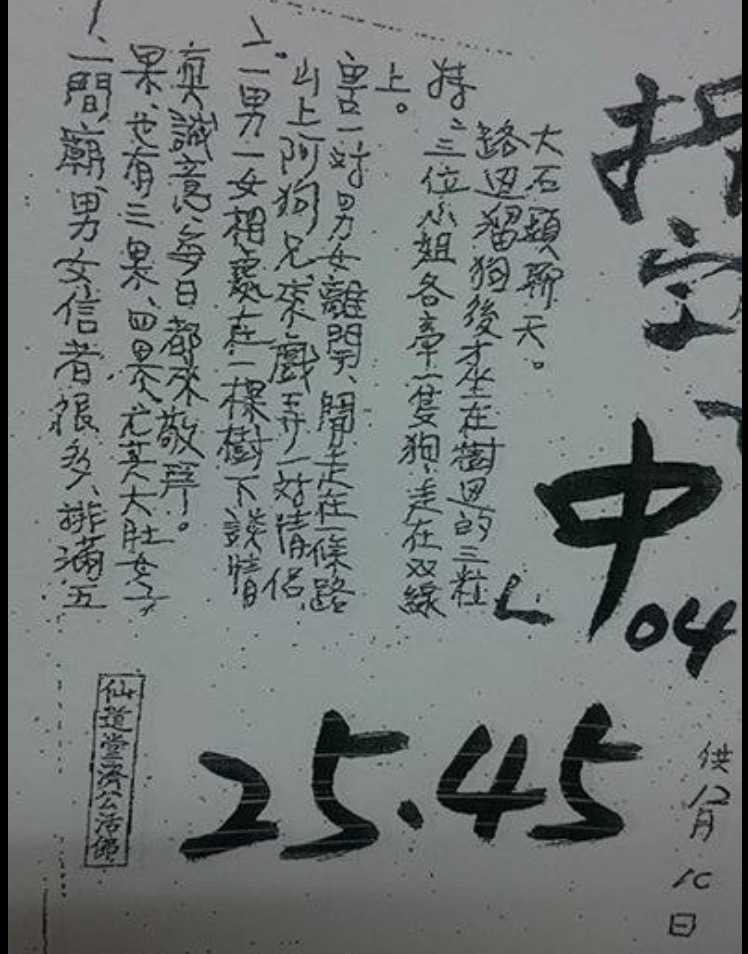 1、一間廟、男女信者很多、排滿五
果、也有三果、四果尤其大肚女子
真誠意、每日都來敬拜。
2、一男一女相處在一棵樹下談情
山上阿狗兄、來戲弄一對情侶、
害一對男女離開、開走在一條路
上。
特、三位小姐各牽一隻狗、走在双線
路边溜狗後才坐在樹边的三粒
大石頭聊天。
中04
25.45
供12月10日
仙道堂濟公活佛